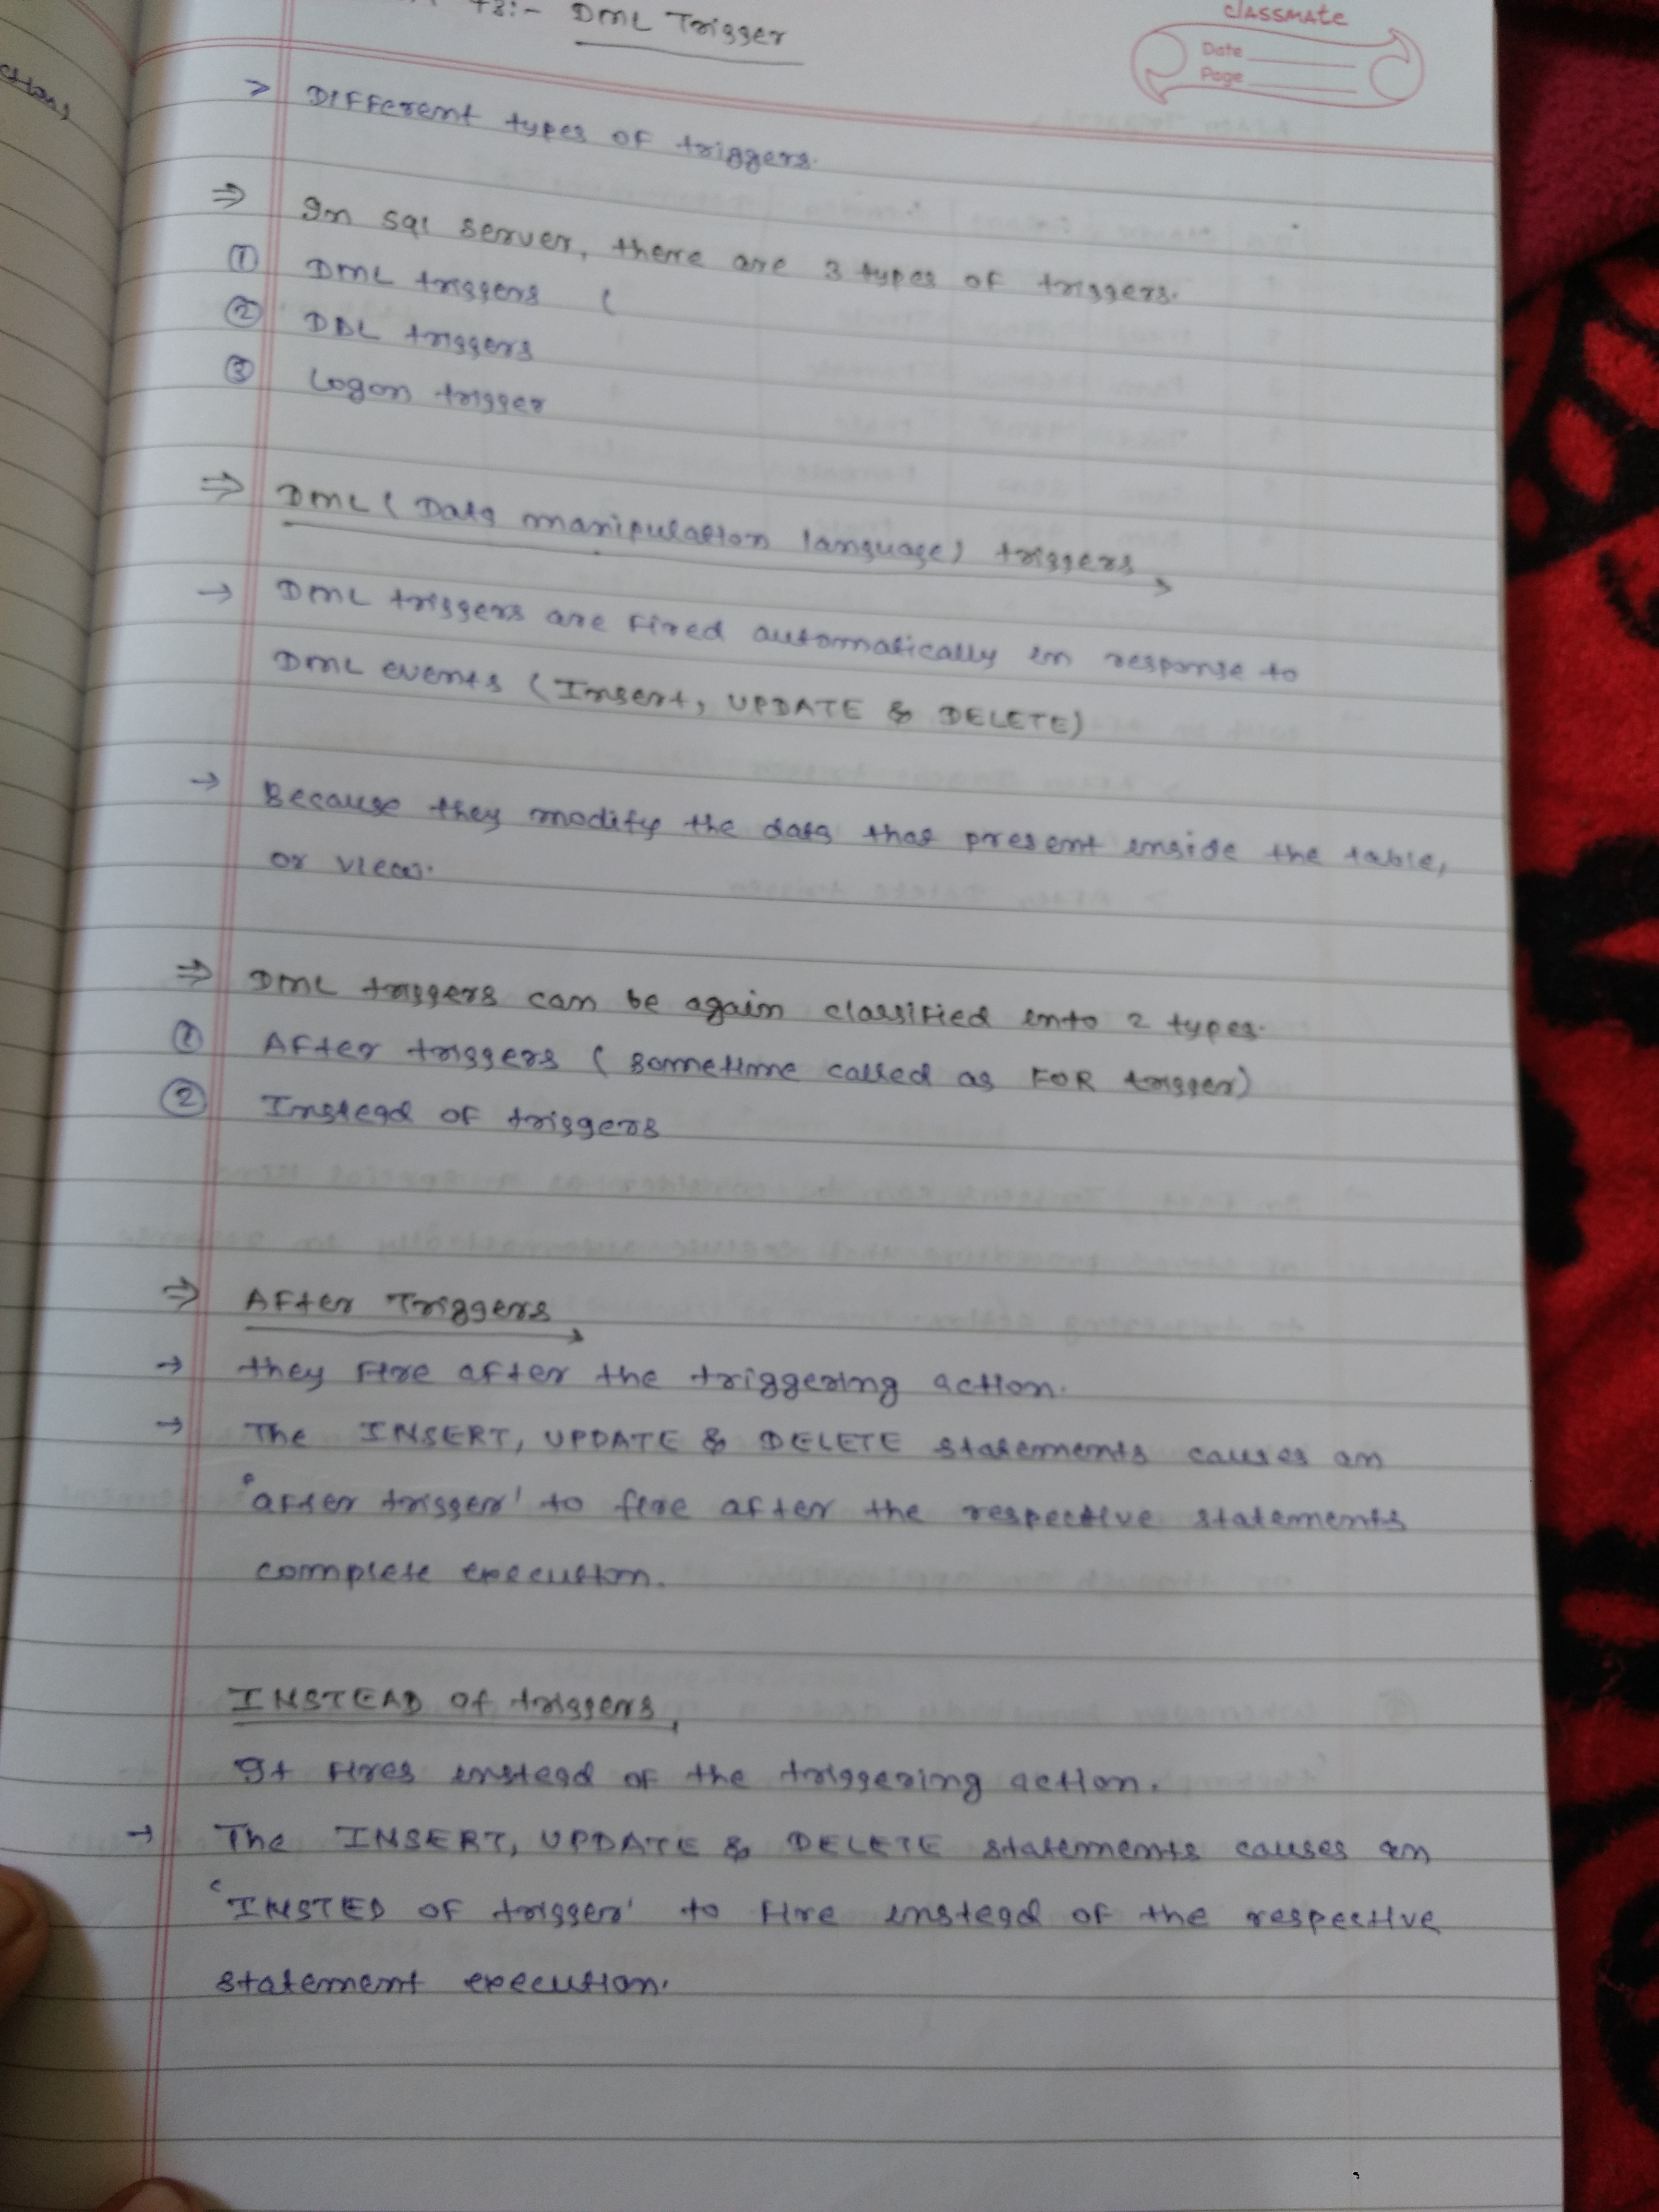 43:- DML Trigger
classmate
Date
Page
> Different types of triggers.
⇒ In sql server, there are 3 types of triggers.
① DML triggers (
② DDL triggers
③ Logon trigger
⇒ DML (Data manipulation language) triggers
→ DML triggers are fired automatically in response to
DML events (Insert, UPDATE & DELETE)
→ Because they modify the data that present inside the table,
or view.
⇒ DML triggers can be again classified into 2 types.
① After triggers (sometime called as FOR trigger)
② Instead of triggers
⇒ After Triggers
→ they fire after the triggering action.
→ The INSERT, UPDATE & DELETE statements causes an
'after trigger' to fire after the respective statements
complete execution.
INSTEAD of triggers,
It fires instead of the triggering action.
→ The INSERT, UPDATE & DELETE statements causes an
'INSTED OF trigger' to fire instead of the respective
statement execution.